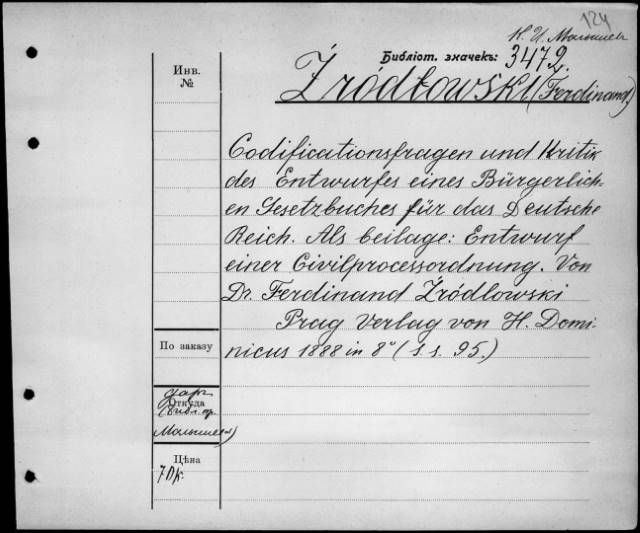 124
К. И. Малышев
Библіот. значекъ: 3472.
Źródłowski (Ferdinand)
Инв.
№
Codificationsfragen und Kritik
des Entwurfes eines Bürgerlich-
en Gesetzbuches für das Deutsche
Reich. Als beilage: Entwurf
einer Civilprocessordnung. Von
Dr. Ferdinand Źródlowski
Prag Verlag von H. Domi-
nicus 1888 in 8° (s. s. 95.)
По заказу
даръ
Откуда
(библ. пр.
Малышева)
Цѣна
70к.